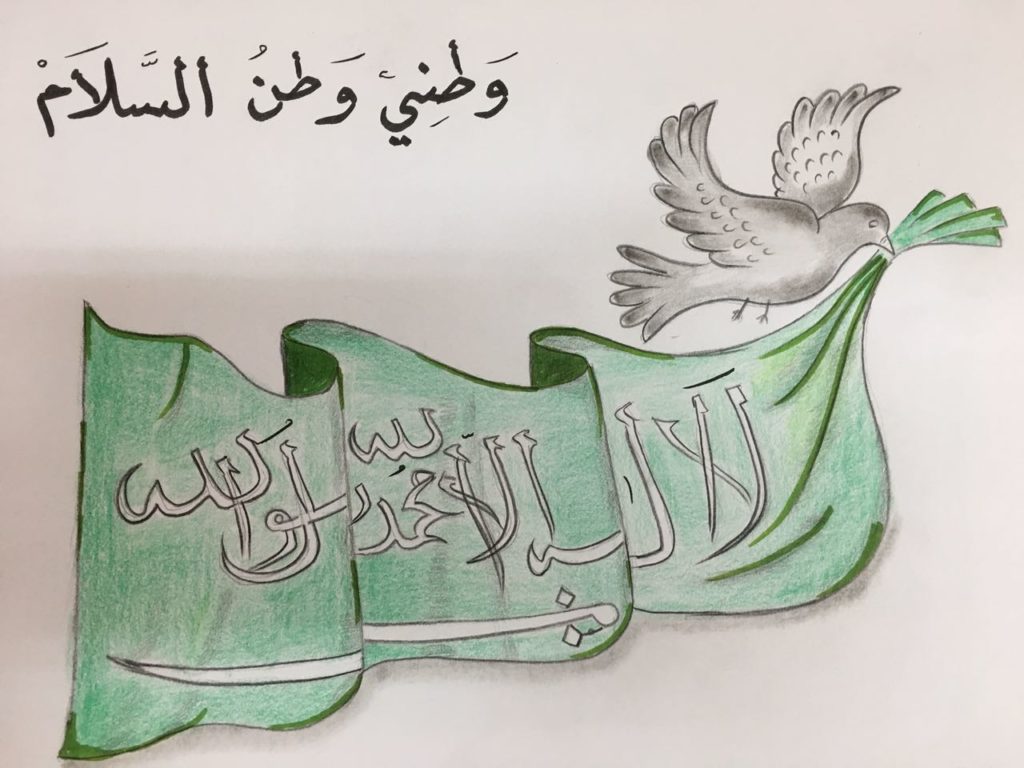 وَطنِيْ وَطنُ السَّلاَمْ
لا اله الا الله محمد رسول الله